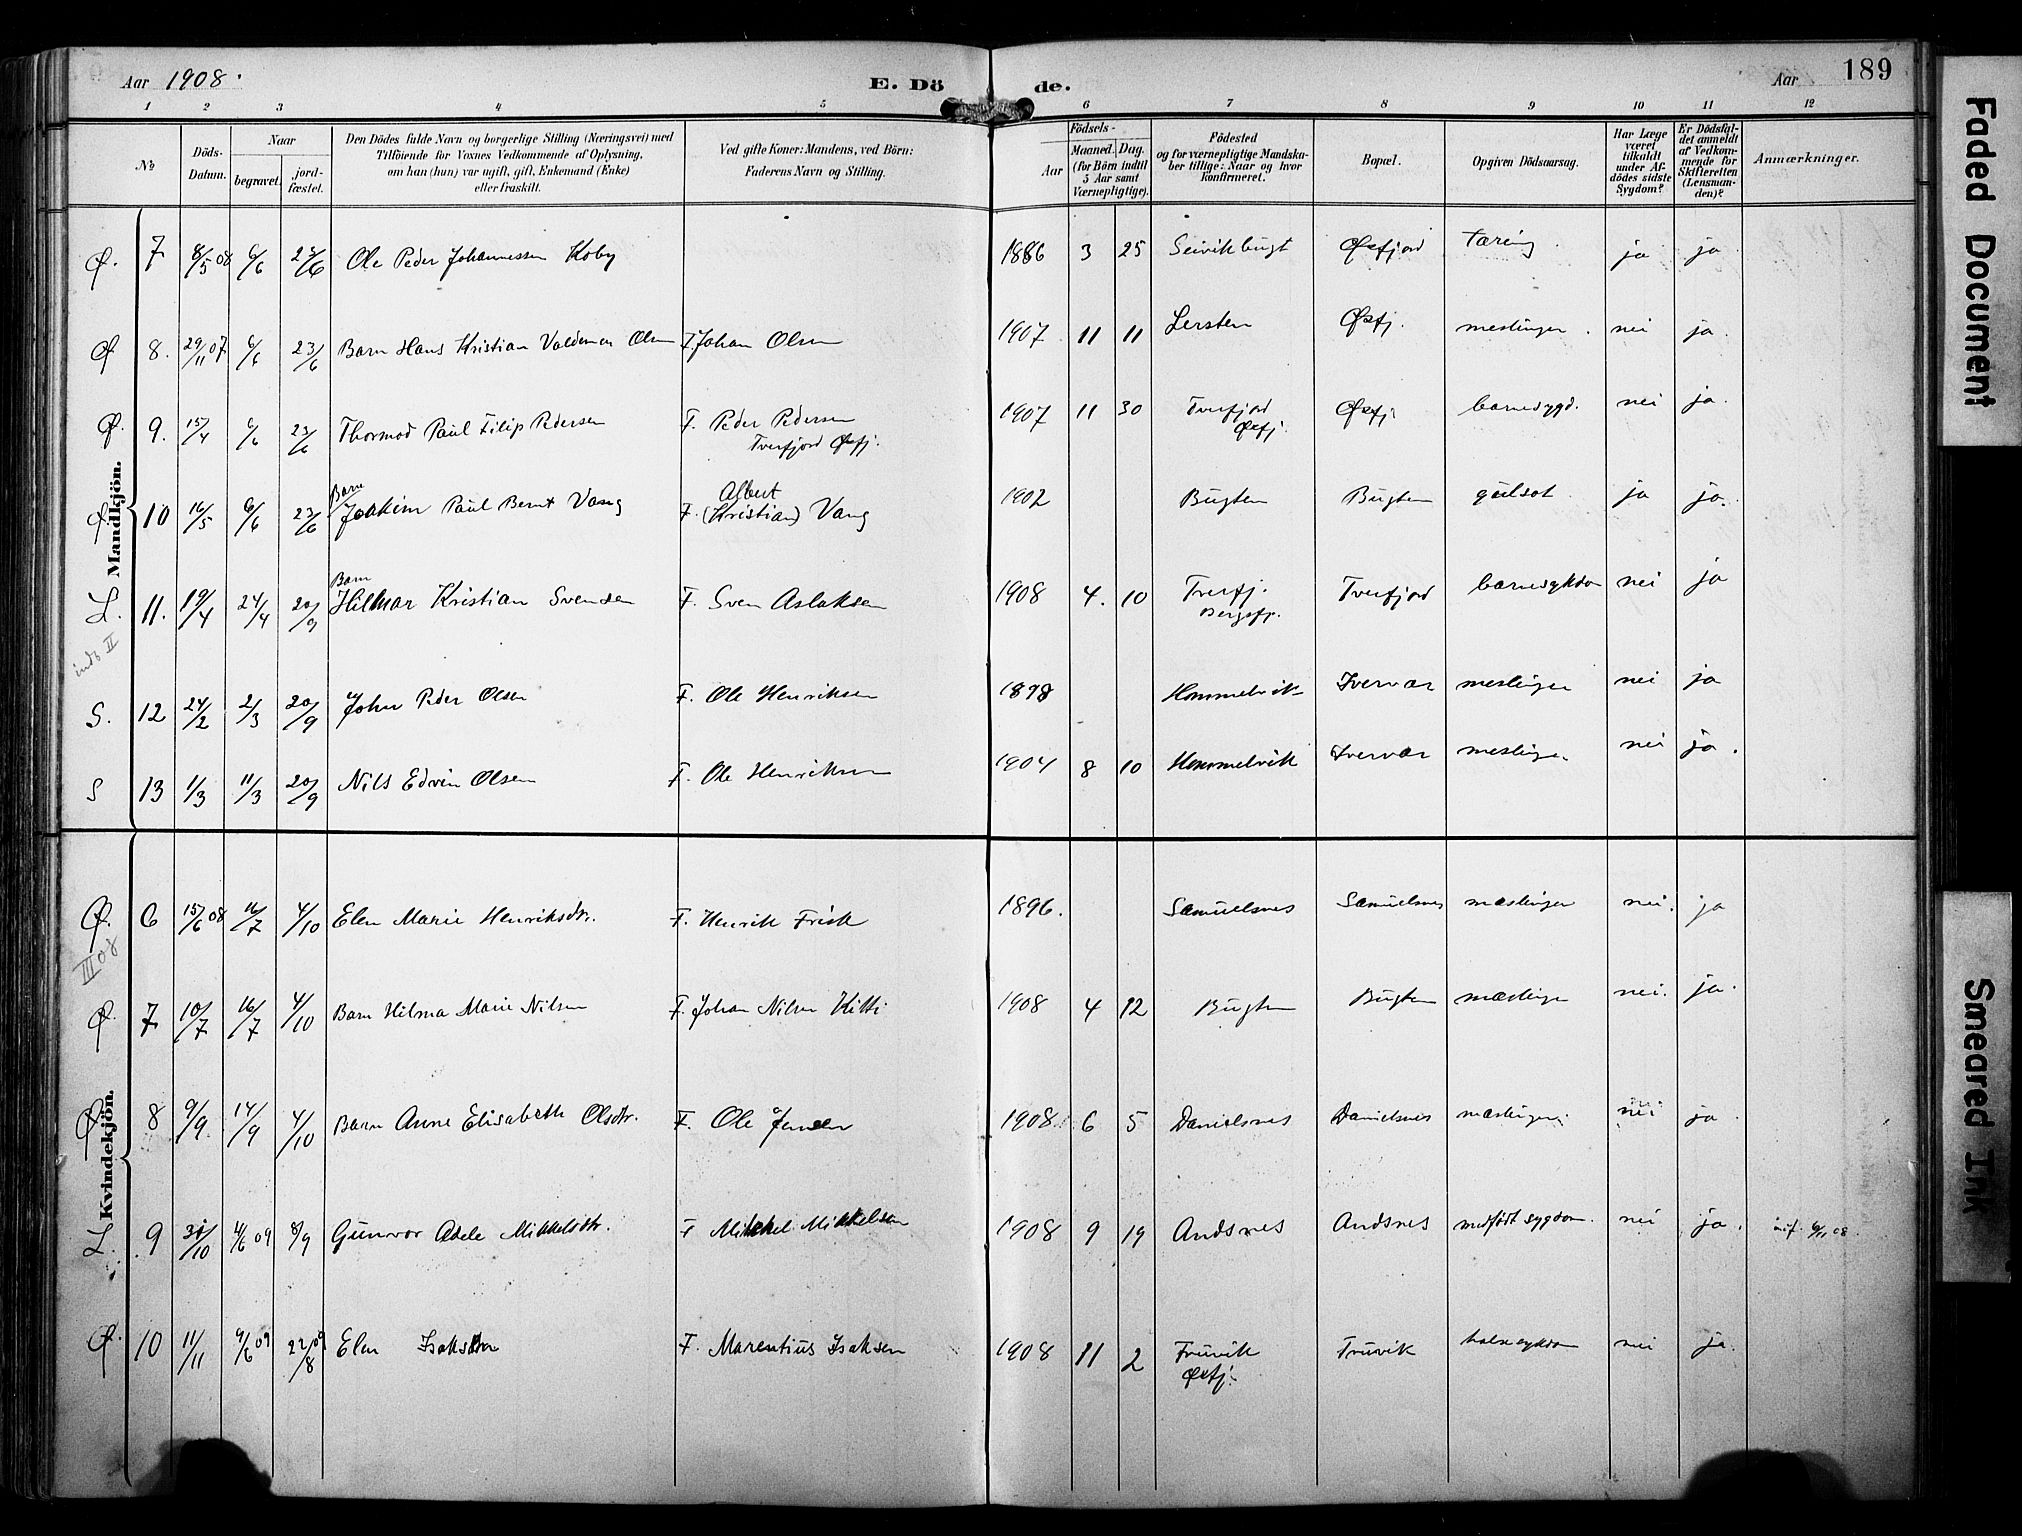 Aar 1908. E. Dö de. Aar 189
1 2 3 4 5 6 7 8 9 10 11 12
№
Döds-Datum.
Naar
begravet. jord-fæstet.
Den Dödes fulde Navn og borgerlige Stilling (Næringsvei) med
Tilföiende for Voxnes Vedkommende af Oplysning,
om han (hun) var ugift, gift, Enkemand (Enke)
eller fraskilt.
Ved gifte Koner: Mandens, ved Börn:
Faderens Navn og Stilling.
Födsels-
Aar Maaned. Dag.
(for Börn indtil
5 Aar samt
Værnepligtige).
Födested
og for værnepligtige Mandska-
ber tillige: Naar og hvor
konfirmeret.
Bopæl.
Opgiven Dödsaarsag.
Har Læge
været
tilkaldt
under Af-
dödes sidste
Sygdom?
Er Dödsfal-
det anmeldt
af Vedkom-
mende for
Skifteretten
(Lensman-
den)?
Anmærkninger.
Mandkjön.
Ø. 7 8/5 08 6/6 23/6 Ole Peder Johannessen Koby 1886 3 25 Seivikbugt Øxfjord Tæring. ja ja.
Ø 8. 29/11 07 6/6 23/6 Barn Hans Kristian Valdemar Olsen F. Johan Olsen 1907 11 11 Lersten Øxfj. meslinger. nei ja.
Ø. 9. 15/4 6/6 23/6 Thormod Paul Filip Pedersen F. Peder Pedersen 1907 11 30 Tverfjord Øxfj. barnesygd. nei ja.
Tverfjord Øxfj. Øxfj.
Barn Albert
Ø. 10 16/5 6/6 23/6 Joakim Paul Bernt Vang F. (Kristian) Vang 1902 Bugten Bugten gulsot. ja ja.
Barn
L. 11. 19/4 24/4 20/9 Hilmar Kristian Svendsen F. Sven Aslaksen 1908 4. 10 Tverfj. Tverfjord barnesykdom nei ja
Bergsfj.
S. 12 24/2 2/3 20/9 John Peder Olsen F. Ole Henriksen 1898 Hommelvik Ivervær meslinger nei ja
S 13 1/3 11/3 20/9 Nils Edvin Olsen F. Ole Henriksen 1904 8 10 Hommelvik Ivervær meslinge. nei ja.
Kvindekjön.
Ø. 6 15/6 08 16/7 4/10 Elen Marie Henriksdtr. F. Henrik Frisk 1896. Samuelsnes Samuelsnes mæslinger nei. ja
III 08
Ø. 7 10/7 16/7 4/10 Barn Hilma Marie Nilsen F. Johan Nilsen Kitti 1908 4 12 Bugten Bugten mæslinge nei. ja.
Ø. 8 9/9. 14/9 4/10 Barn Anne Elisabeth Olsdtr. F. Ole Jensen 1908. 6 5 Danielsnes Danielsnes mæslinger. nei ja.
L. 9 31/10 4/6 09 8/9 Gunvor Adele Mikkelsdtr. F Mikkel Mikkelsen 1908 9 19 Andsnes Andsnes medfødt sygdom. nei ja. 6/11 08.
Ø. 10 11/11 9/6 09 22/8 09 Elen F. Marentius Isaksen 1908 11 2 Truvik Truvik halsesykdom nei ja.
Øxfj.
Faded Document
Smeared Ink